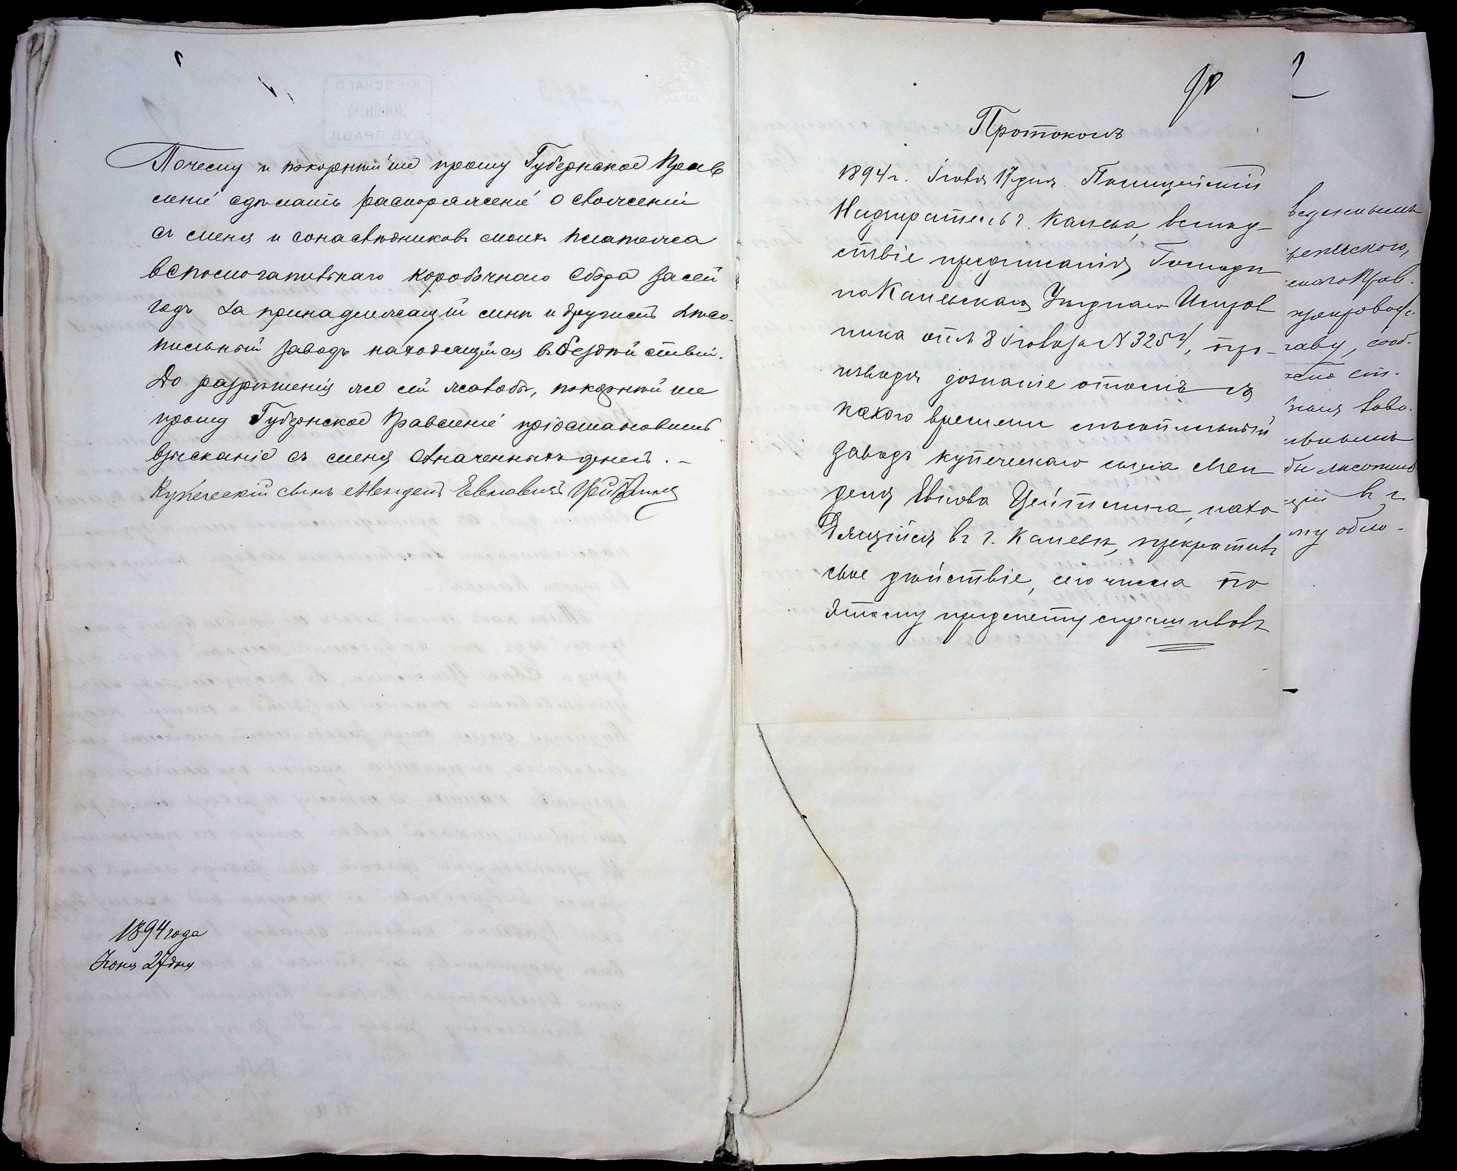 Почему и покорнѣйше прошу Губернское Прав
леніе сдѣлать распоряженіе о сложеніи
съ меня и сонаслѣдниковъ моихъ платежа
вспомогательнаго коробочнаго сбора за сей
годъ за принадлежащій мнѣ и другимъ лѣсо-
пильный заводъ находящійся въ бездѣйствіи.
До разрѣшенія же сей жалобы, покорнѣйше
прошу Губернское Правленіе пріостановить
взысканіе съ меня означенныхъ денегъ. –
Купеческій сынъ Мендель Евелевичъ Цейтлинъ
1894 года
Іюня 27 дня
90
Протоколъ
1894 г. Іюля 17 дня. Полицейскій
Надзиратель г. Канева, вслѣд-
ствіе предписанія Господи
на Каневскаго Уѣзднаго Исправ
ника отъ 8 Іюля за N 3254, про-
изводя дознаніе относит съ
какого времени лѣсопильный
заводъ купеческаго сына Мен
деля Евелева Цейтлина, нахо
дящійся въ г. Каневѣ, прекратилъ
свое дѣйствіе, сего числа по
этому предмету спрашивалъ